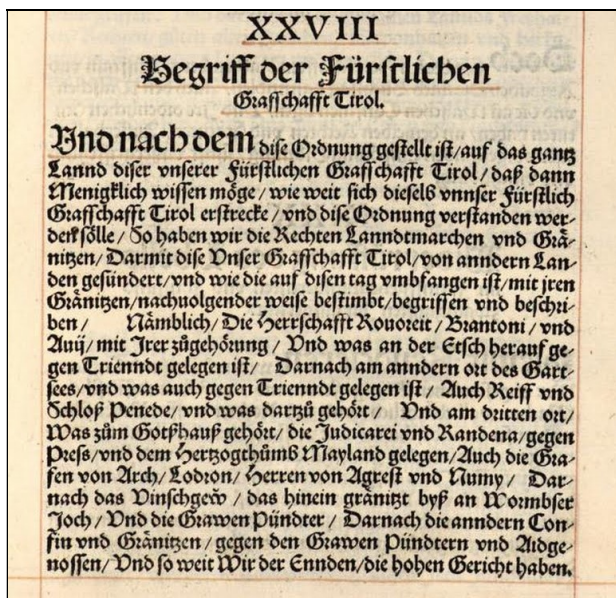 XXVIII
Begriff der Fürstlichen
Graffschafft Tirol.
Vnd nach dem dise Ordnung gestellt ist/auf das gantz
Lannd diser vnserer Fürstlichen Graffschafft Tirol/daß dann
Menigklich wissen möge/wie weit sich dieselb vnnser Fürstlich
Graffschafft Tirol erstrecke/vnd dise Ordnung verstanden wer-
den sölle/So haben wir die Rechten Lanndtmarchen vnd Grä-
nitzen/Darmit dise Vnser Graffschafft Tirol/von anndern Lan-
den gesündert/vnd wie die auf disen tag vmbfangen ist/mit jren
Gränitzen/nachuolgender weise bestimbt/begriffen vnd beschri-
ben/ Nämblich/Die Herrschafft Rouoreit/Brantoni/vnd
Auij/mit Irer zůgehörung/Vnd was an der Etsch herauf ge-
gen Trienndt gelegen ist/ Darnach am anndern ort des Gart-
sees/vnd was auch gegen Trienndt gelegen ist/Auch Reiff vnd
Schloß Penede/vnd was dartzů gehört/ Vnd am dritten ort/
Was zům Gotßhauß gehört/die Judicarei vnd Randena/gegen
Press/vnd dem Hertzogthůmb Mayland gelegen/Auch die Gra-
fen von Arch/Lodron/Herren von Agrest vnd Numy/ Dar-
nach das Vinschgew/das hinein gränitzt byß an Wormbser
Joch/Vnd die Grawen Pündter/Darnach die anndern Con-
fin vnd Gränitzen/gegen den Grawen Pündtern vnd Aidge-
nossen/Vnd so weit Wir der Ennden/die hohen Gericht haben.